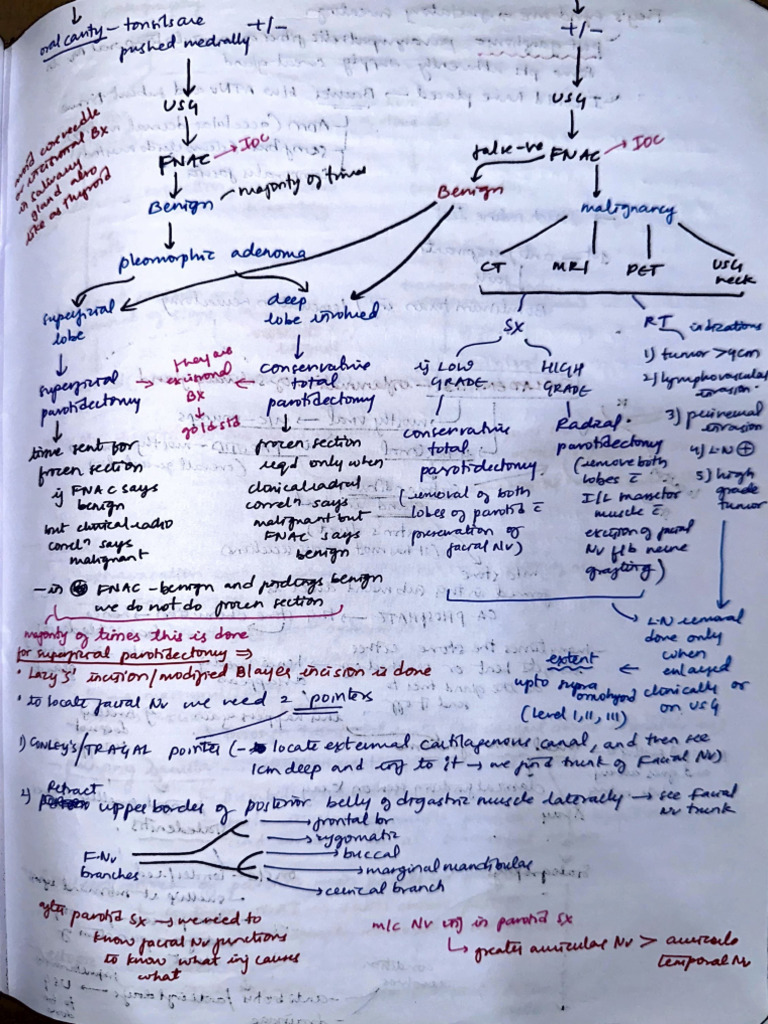 oral cavity - tonsils are
pushed medially +/-
+/-
USG
USG
FNAC → IOC
false -ve FNAC → IOC
avoid core needle
or incisional Bx
in salivary
gland also
like as thyroid
Benign - majority of times
Benign
malignancy
pleomorphic adenoma
CT MRI PET USG
neck
superficial
lobe
deep
lobe involved
superficial
parotidectomy
they are
excisional
Bx
↓
gold std
conservative
total
parotidectomy
time sent for
frozen section
if FNAC says
benign
but clinical-radio
correlⁿ says
malignant
frozen section
reqd only when
clinical radiol
correlⁿ says
malignant but
FNAC says
benign
SX
if LOW
GRADE
HIGH
GRADE
conservative
total
parotidectomy
(removal of both
lobes of parotid c̄
preservation of
facial Nv)
Radical
parotidectomy
(remove both
lobes c̄
I/L masseter
muscle c̄
excision of facial
Nv f/b nerve
grafting)
RT indications
1) tumor >4cm
2) lymphovascular
invasion
3) perineural
invasion
4) LN ⊕
5) high
grade
tumor
LN removal
done only
when
enlarged
clinically or
on USG
extent ←
upto supra
omohyoid
(level I, II, III)
- if FNAC - benign and
benign
we do not do frozen section
majority of times this is done
for superficial parotidectomy ⇒
• Lazy 'S' incision/modified Blayes incision is done
• to locate facial Nv we need 2 pointers
1) CONLEY'S/TRAGAL pointer (- locate external cartilagenous canal, and then see
1cm deep and to it → we find trunk of Facial Nv)
2) Retract upper border of posterior belly of digastric muscle laterally → see Facial
Nv trunk
F.Nv
branches
→ frontal br
→ zygomatic
→ buccal
→ marginal mandibular
→ cervical branch
after parotid SX → we need to
know facial Nv functions
to know what inj causes
what
m/c Nv inj in parotid SX
↳ greater auricular Nv > auriculo
temporal Nv